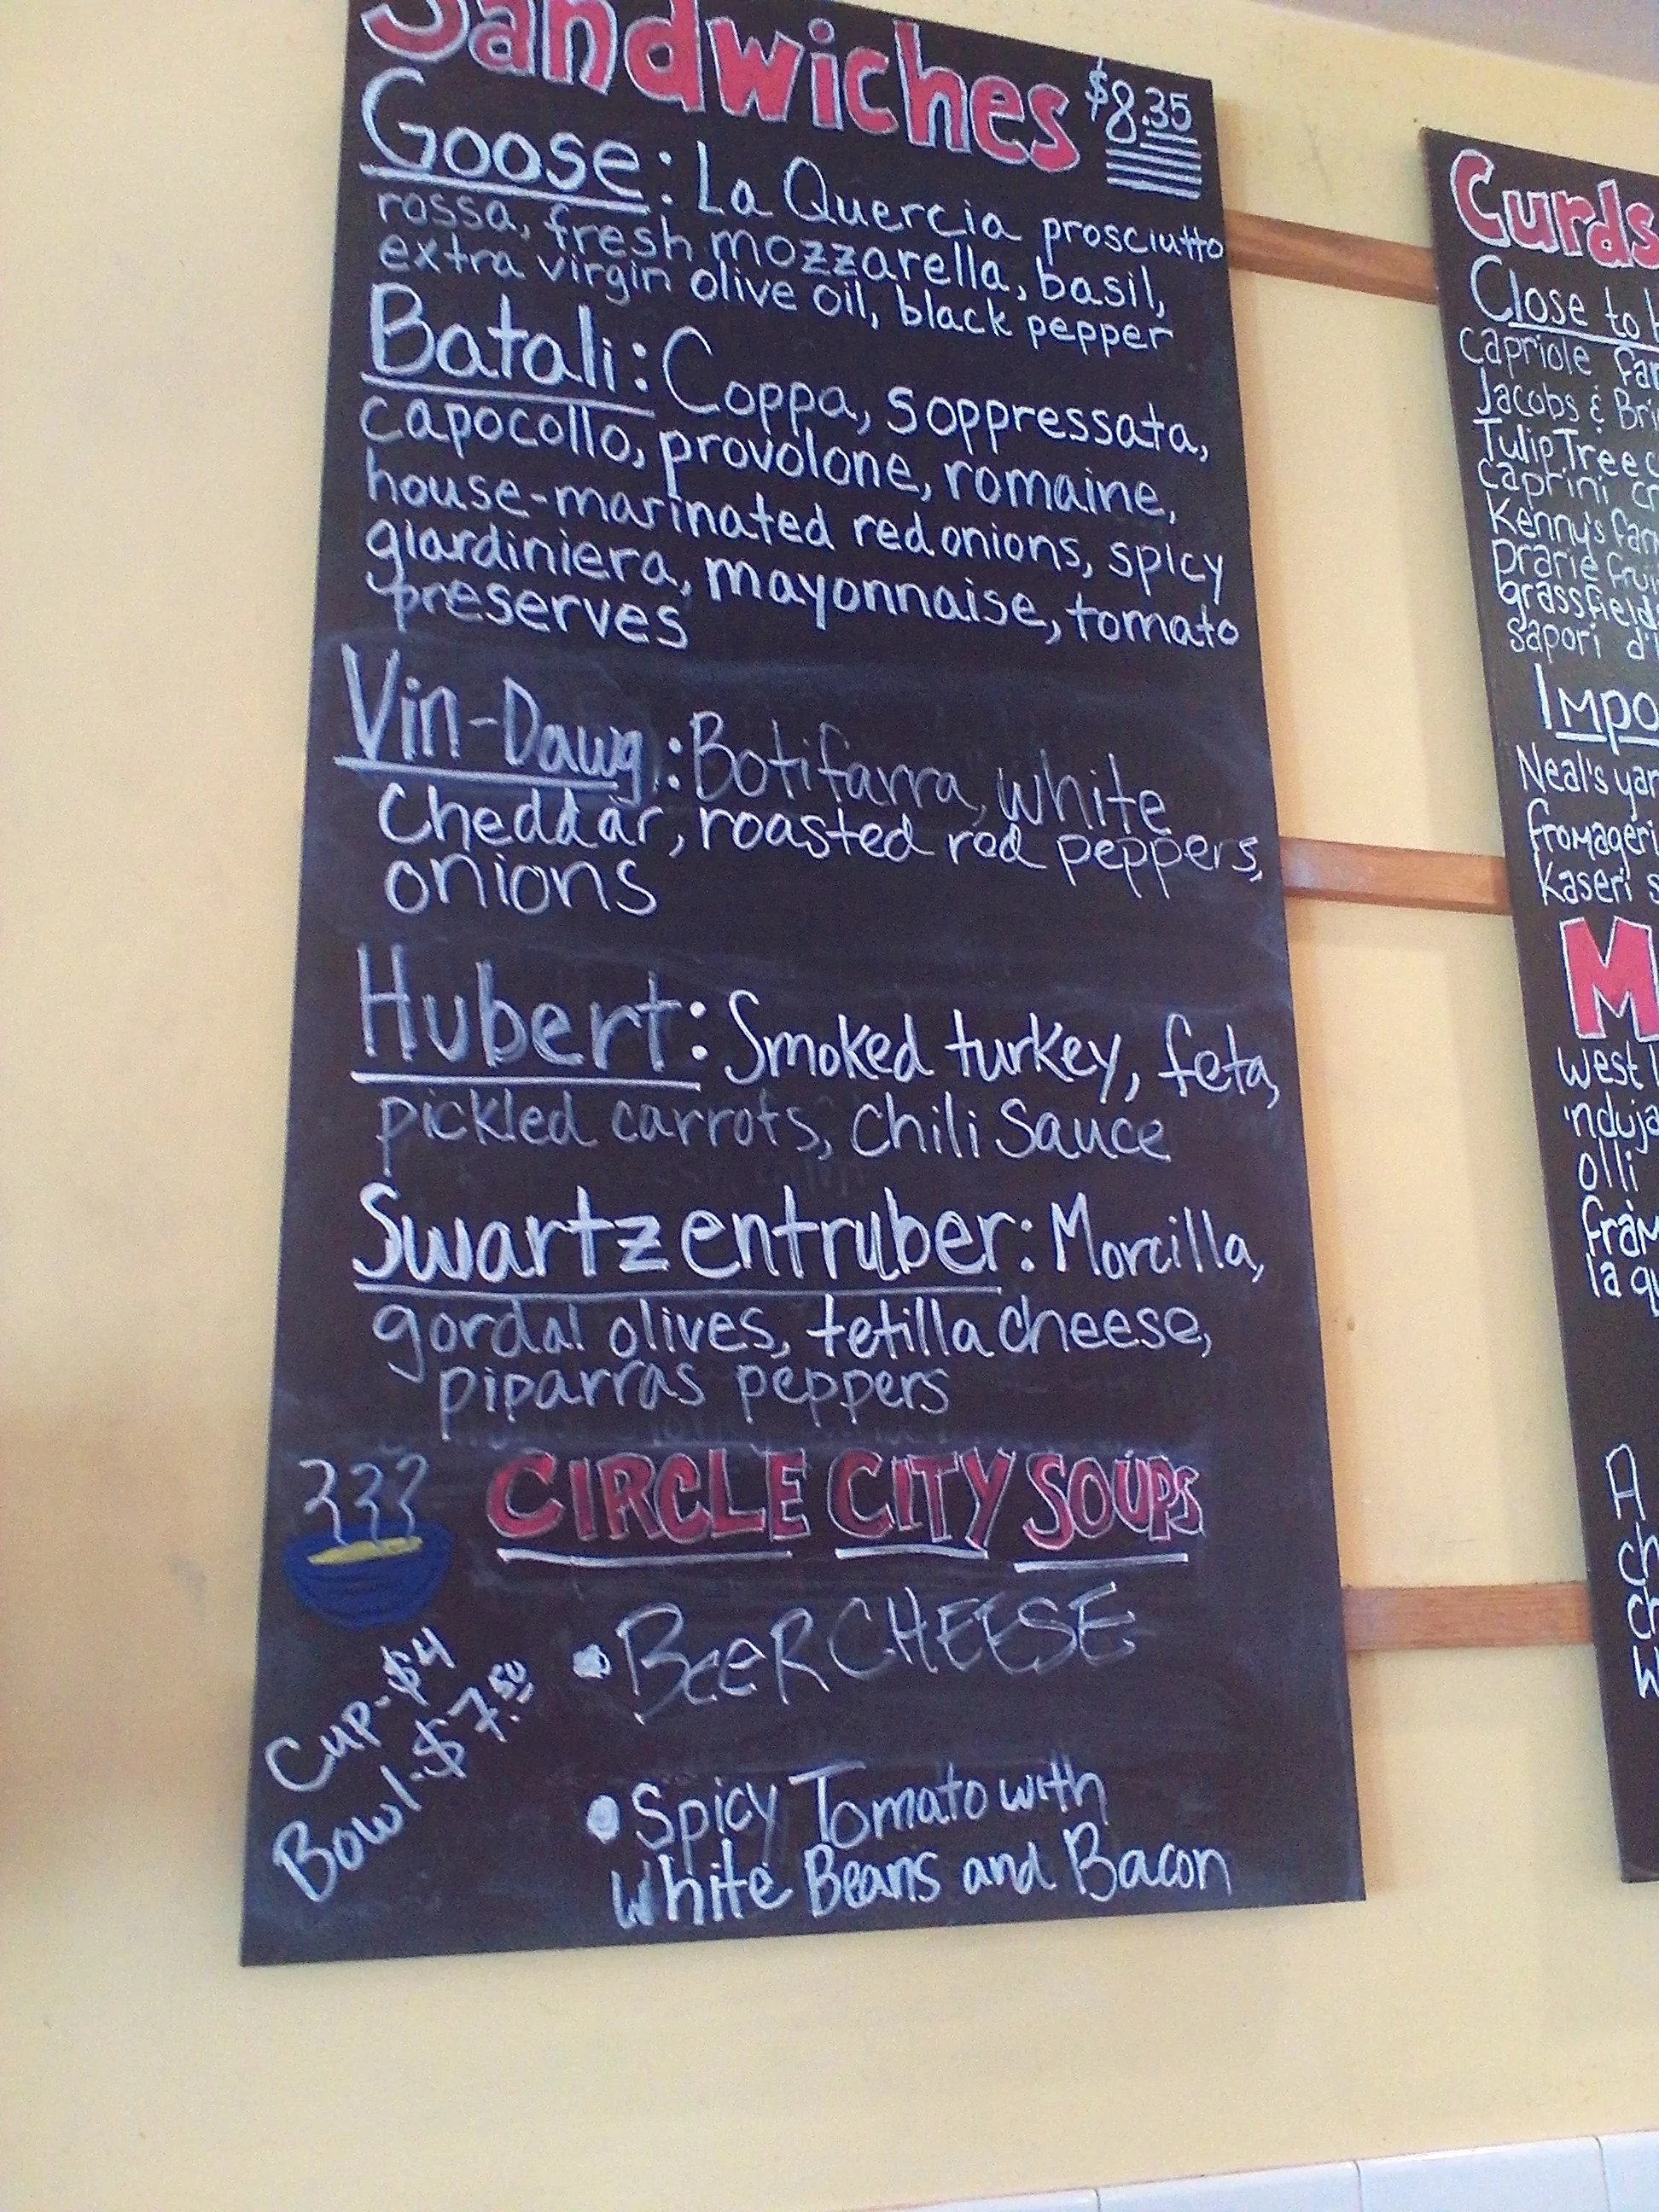 Sandwiches $8.35
Goose: La Quercia prosciutto
rossa, fresh mozzarella, basil,
extra virgin olive oil, black pepper
Batali: Coppa, soppressata,
capocollo, provolone, romaine,
house-marinated red onions, spicy
giardiniera, mayonnaise, tomato
preserves
Vin-Dawg: Botifarra, white
Cheddar, roasted red peppers,
onions
Hubert: Smoked turkey, feta,
pickled carrots, Chili Sauce
Swartzentruber: Morcilla,
gordal olives, tetilla cheese,
piparras peppers
CIRCLE CITY SOUPS
Cup-$4
Bowl-$7.50
• BeeR CHEESE
• Spicy Tomato with
White Beans and Bacon
Curds
Close to
capriole
Jacobs &
Tulip Tree
caprini
Kenny's
prarie
grassfields
sapori d'
Neal's
Kaseri
M
west
'nduja
olli
la
A